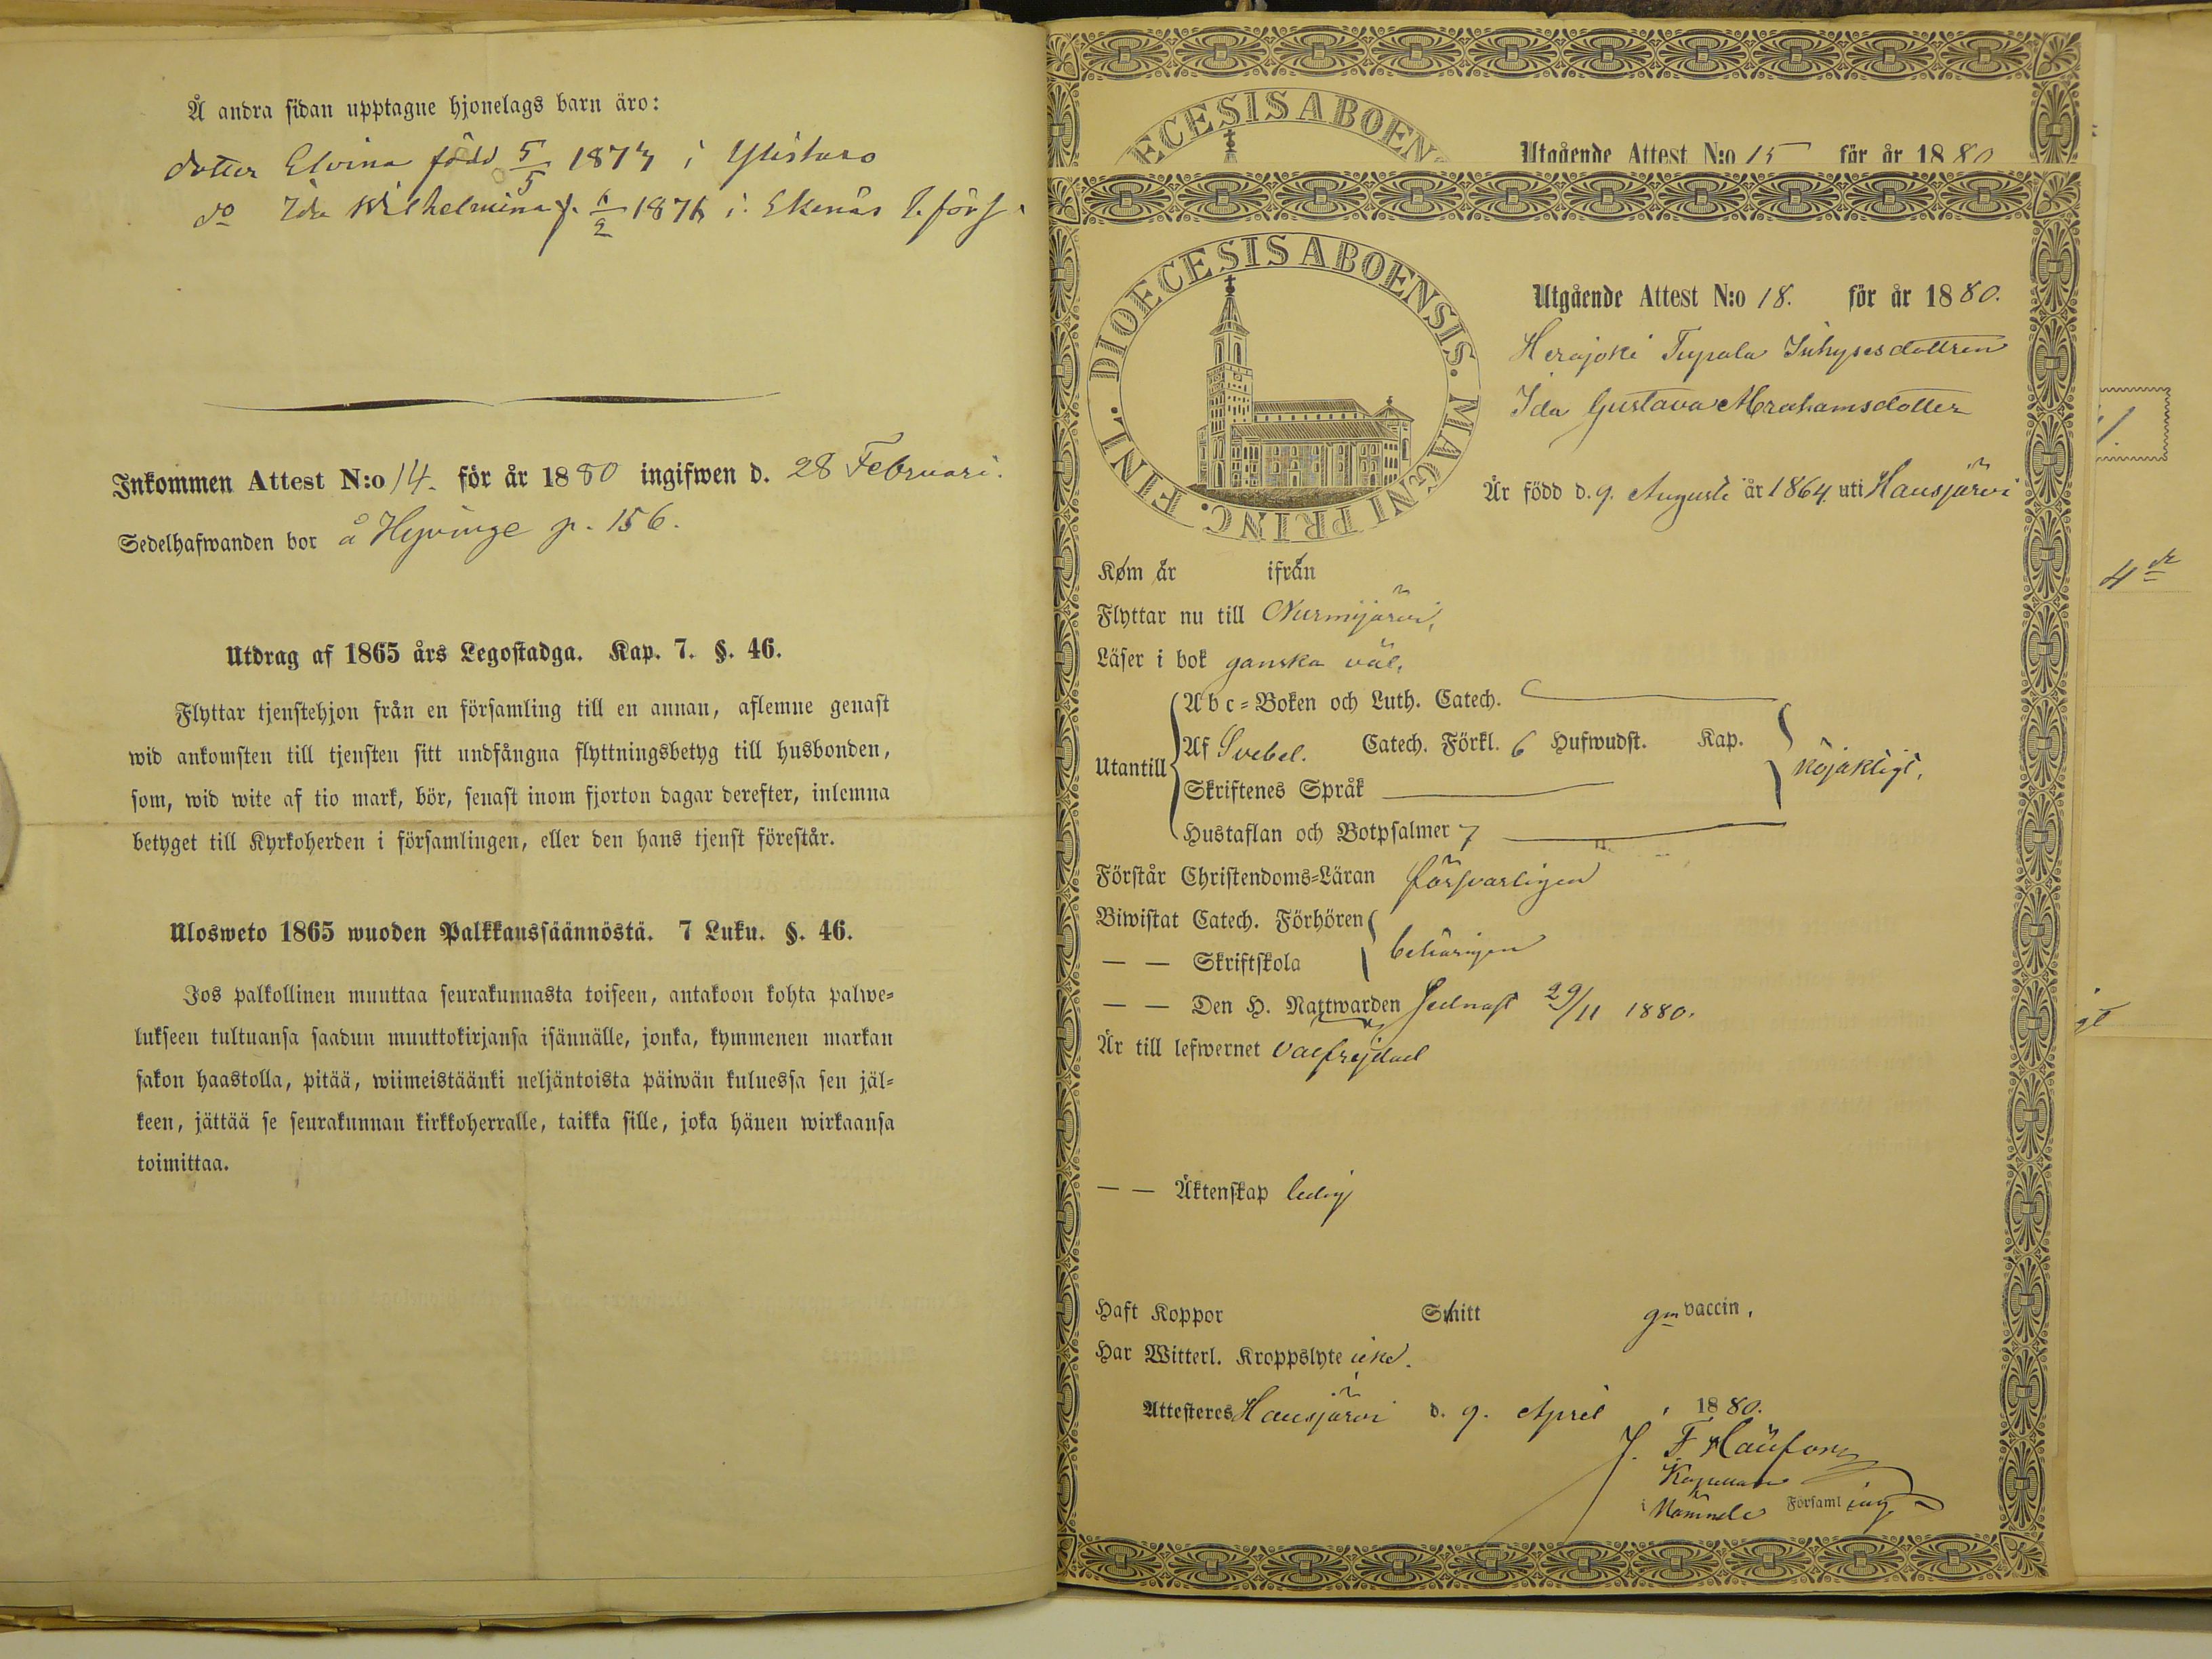 Å andra sidan upptagne hjonelags barn äro:
dotter Elvina född 5/5 1874 i Ylistaro
do Ida Wilhelmina f. 6/2 1876 i Ekenäs l. förs.
Inkommen Attest N:o 14. för år 1880 ingifwen d. 28 Februari.
Sedelhafwanden bor å Hyvinge p. 156.
Utdrag af 1865 års Legostadga. Kap. 7. §. 46.
Flyttar tjenstehjon från en församling till en annan, aflemne genast
wid ankomsten till tjensten sitt undfångna flyttningsbetyg till husbonden,
som, wid wite af tio mark, bör, senast inom fjorton dagar derefter, inlemna
betyget till Kyrkoherden i församlingen, eller den hans tjenst förestår.
Ulosweto 1865 wuoden Palkkaussäännöstä. 7 Luku. §. 46.
Jos palkollinen muuttaa seurakunnasta toiseen, antakoon kohta palwe-
lukseen tultuansa saadun muuttokirjansa isännälle, jonka, kymmenen markan
sakon haastolla, pitää, wiimeistäänki neljäntoista päiwän kuluessa sen jäl-
keen, jättää se seurakunnan kirkkoherralle, taikka sille, joka hänen wirkaansa
toimittaa.
ECESIS ABOEN
Utgående Attest N:o 15 för år 1880
DIOECESIS ABOENSIS. MAGNI PRINC. FINL.
Utgående Attest N:o 18. för år 1880.
Herajoki Tupala Inhysesdottren
Ida Gustava Abrahamsdotter
Är född d. 9. Augusti år 1864 uti Hausjärvi
Kom år ifrån
Flyttar nu till Nurmijärvi,
Läser i bok ganska väl.
Abc-Boken och Luth. Catech.
Utantill
Af Svebel. Catech. Förkl. 6 Hufwudst. Kap.
nöjaktigt.
Skriftenes Språk
Hustaflan och Botpsalmer 7
Förstår Christendoms-Läran försvarligen
Biwistat Catech. Förhören
— — Skriftskola behörigen
— — Den H. Nattwarden sednast 29/11 1880.
Är till lefwernet välfrejdad
— — Äktenskap ledig
Haft Koppor Snitt gm vaccin.
Har Witterl. Kroppslyte icke.
Attesteras Hausjärvi d. 9. April 1880.
Kapellan
i Församling
4 de
gt